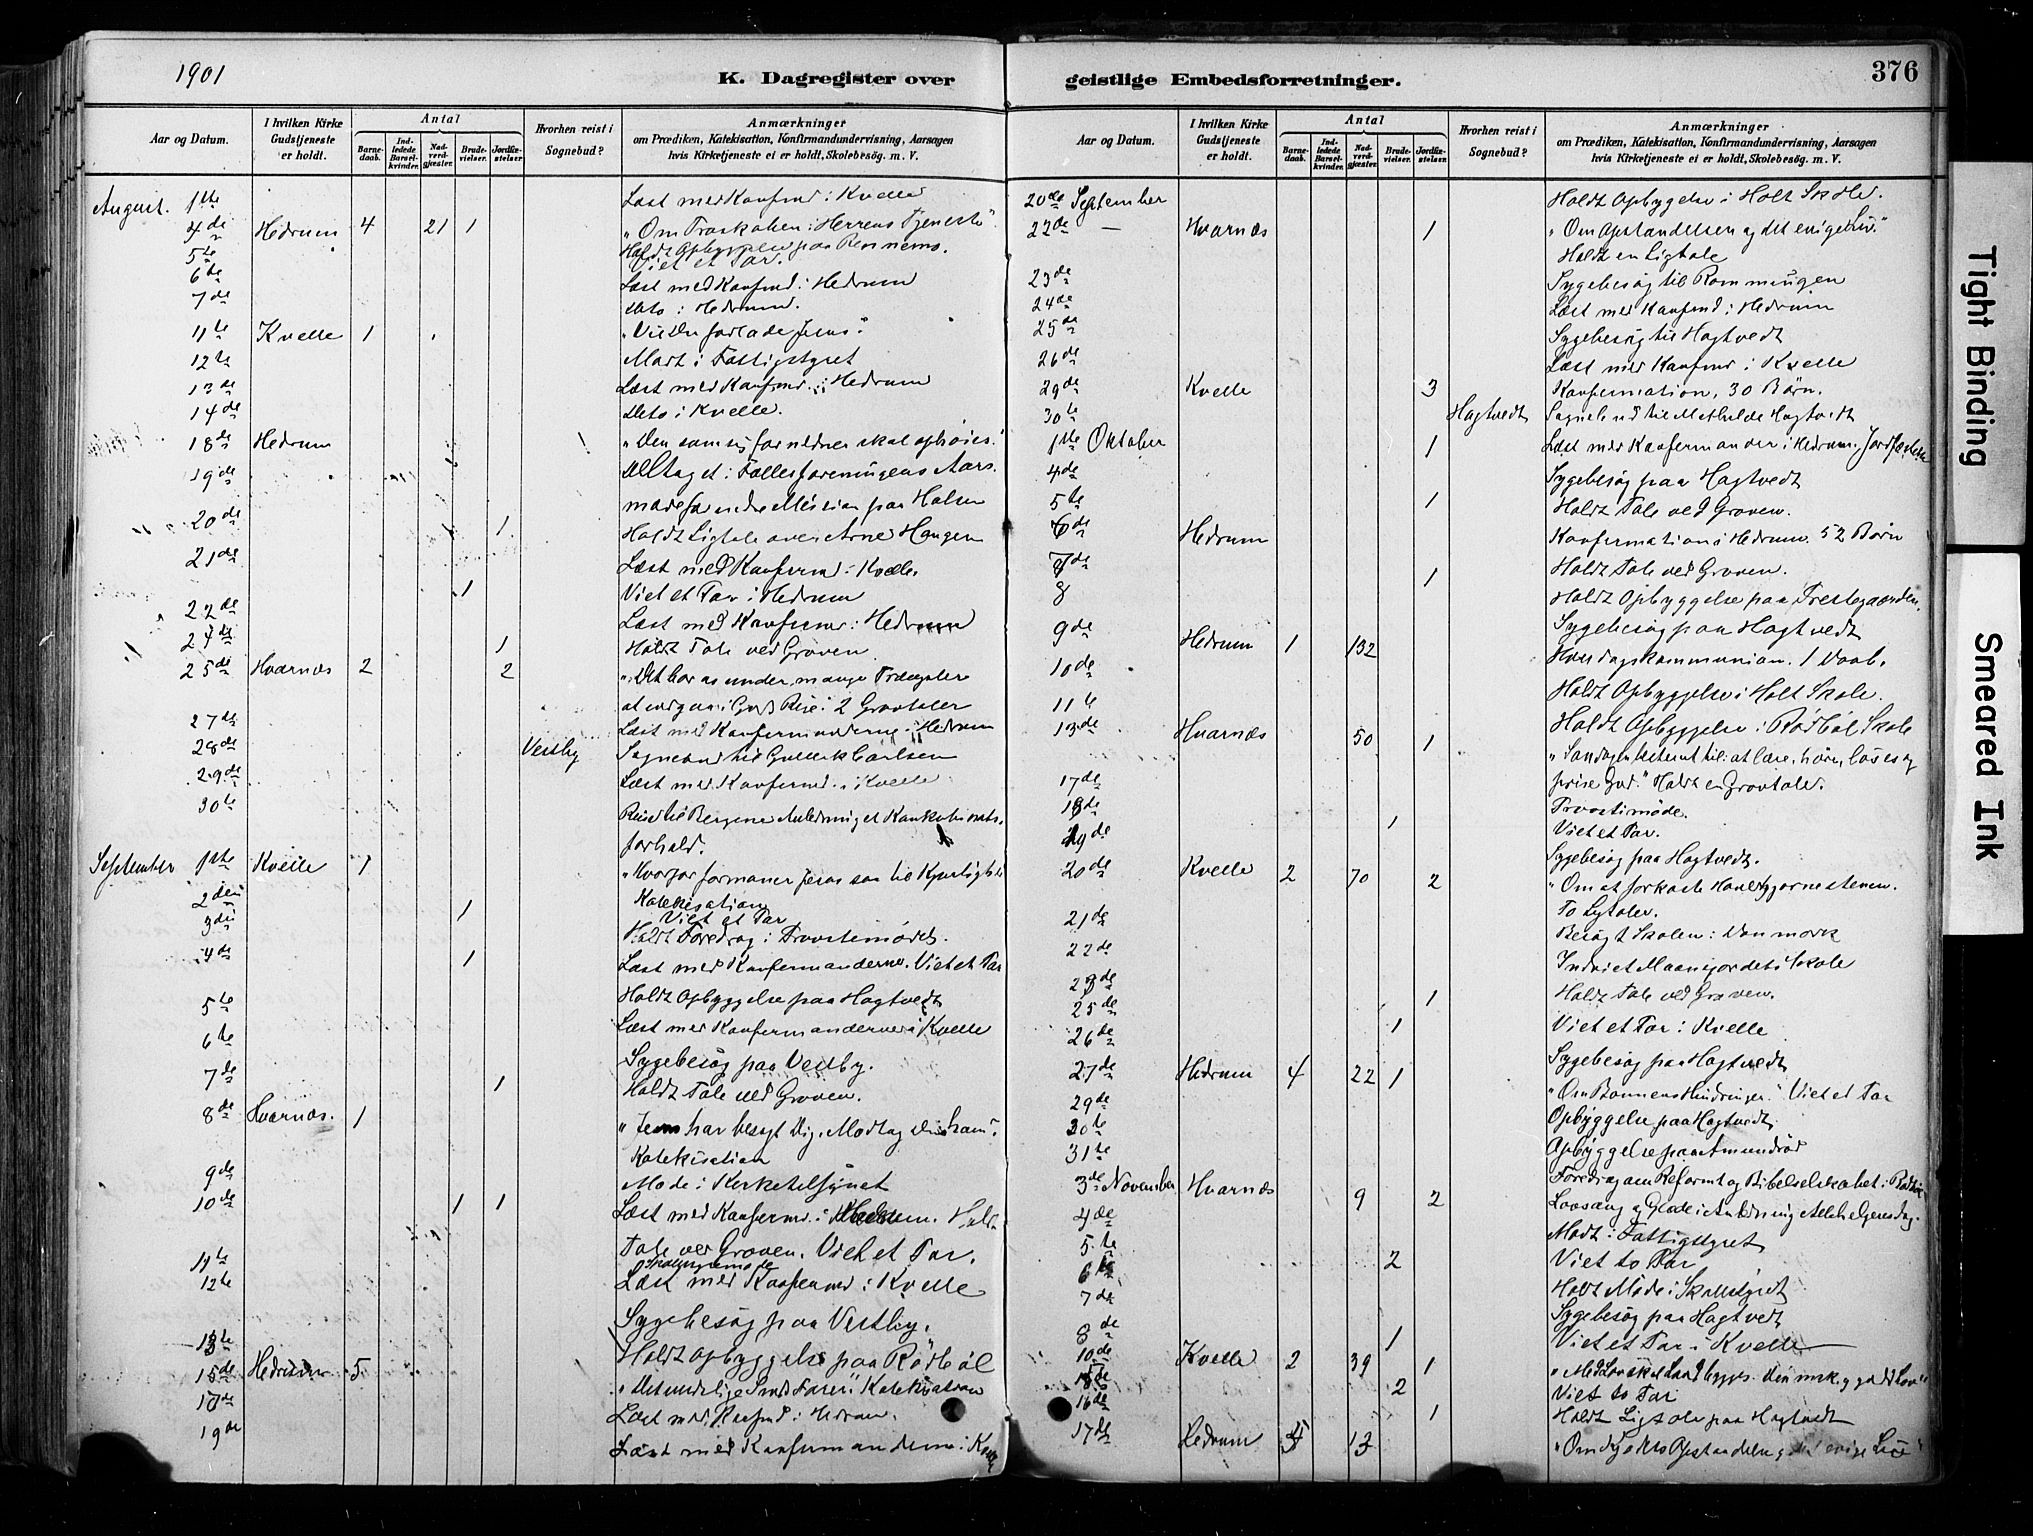 1901
K. Dagregister over
Aar og Datum.
I hvilken Kirke Gudstjeneste er holdt.
Antal
Barne-daab.
Ind-ledede Barsel-kvinder.
Nad-verd-gjester.
Brude-vielser.
Jordfæ-stelser
Hvorhen reist i Sognebud?
Anmærkninger
om Prædiken, Katekisation, Konfirmandundervisning, Aarsagen
hvis Kirketjeneste ei er holdt, Skolebesøg. m. V.
August. 1ste Læst med Konfmd i Kvelle
4de Hedrum 4 21 1 "Om Troskaben i Herrens Tjeneste"
5te Holdt Opbyggelse paa Rennems.
Viet et Par.
6te Læst med Konfmd i Hedrum
7de dito i Hedrum.
11te Kvelle 1 "Vil du forlade Jesus."
12te Mødt i Fattigstyret
13de Læst med Konfmd. i Hedrum
14de dito i Kvelle.
18de Hedrum "Den som sig fornedrer skal ophøies."
19de Deltaget i Fællesforeningens Aars-
møde for indre Mission paa Halsen
20de 1 Holdt Ligtale over Arne Haugen
21de Læst med Konfirmd i Kvelle.
1 Viet et Par i Hedrum
22de Læst med Konfirmd i Hedrum
24de 1 Holdt Tale ved Graven
25de Hvarnæs 2 2 "Det bør os under mange Trængsler
at indgaa i Guds Rige." 2 Gravtaler
27de Læst med Konfirmanderne i Hedrum
28de Vestby Sognebud til Gullik Carlsen
29de Læst med Konfirmd. i Kvelle
30te Reise til Bergene Anledning et Konkubinats-
forhold.
September 1ste Kvelle 1 "Hvorfor formaner Jesus saa til Kjærlighed
Katekisation
2den 1 Viet et Par
3die Holdt Foredrag i Provstemødet.
4de 1 Læst med Konfirmanderne. Viet et Par
5te Holdt Opbyggelse paa Hagtvedt
6te Læst med Konfirmanderne i Kvelle
Sygebesøg paa Vestby.
7de 1 Holdt Tale ved Graven.
8de Hvarnæs. 1 "Jesus har besøgt Dig. Modtag du ham".
Katekisation
9de Møde i Kirketilsynet
10de 1 1 Læst med Konfirmd. i Hedrum. Holdt
Tale ved Graven. Viet et Par.
11te
12te Læst med Konfirmd i Kvelle
Sygebesøg paa Vestby.
13te Holdt Opbyggelse paa Rødbøl
15de Hedrum 5 Katekisation
17de Læst med Konfmd i Hedrum.
19de Læst med Konfirmanderne i Kvelle
geistlige Embedsforretninger.
376
Aar og Datum.
I hvilken Kirke Gudstjeneste er holdt.
Antal
Barne-daab.
Ind-ledede Barsel-kvinder.
Nad-verd-gjester.
Brude-vielser.
Jordfæ-stelser
Hvorhen reist i Sognebud?
Anmærkninger
om Prædiken, Katekisation, Konfirmandundervisning, Aarsagen
hvis Kirketjeneste ei er holdt, Skolebesøg m. V.
20de September Holdt Opbyggelse i Holt Skole.
22de — Hvarnæs 1 "Om Opstandelsen og det evige Liv."
Holdt en Ligtale
23de Sygebesøg til
24de Læst med Konfmd i Hedrum
25de Sygebesøg til Hagtvedt
26de Læst med Konfmd i Kvelle
29de Kvelle 3 Konfirmation, 30 Børn.
30te Hagtvedt Sognebud til Mathilde Hagtvedt
1ste Oktober 1 Læst med Konfirmander i Hedrum, Jordfæstelse
4de Sygebesøg paa Hagtvedt
5te 1 Holdt Tale ved Graven.
6de Hedrum Konfirmation i Hedrum 52 Børn
7de 1 Holdt Tale ved Graven.
8 Holdt Opbyggelse paa Prestegaarden.
9de Sygebesøg paa Hagtvedt
Hedrum 1 132 Hverdagskommunion. 1 Daab.
10de Holdt Opbyggelse i Holt Skole.
11te Holdt Opbyggelse i Rødbøl Skole
13de Hvarnæs 50 1 at lære, høre, læse og
prise Gud." Holdt en Gravtale.
17de Provstimøde.
18de 1 Viet et Par.
19de Sygebesøg paa Hagtvedt.
20de Kvelle 2 70 2 "Om at forkaste Hovedhjørnestenen.
To Ligtaler.
21de Besøgt Skolen i Danmark
22de Indviet Skole
23de 1 Holdt Tale ved Graven.
25de
26de 1 Viet et Par i Kvelle
Sygebesøg paa Hagtvedt
27de Hedrum 4 22 1 "Om Bønnens Hindringer." Viet et Par
29de Opbyggelse paa Hagtvedt
30te Opbyggelse paa Amundrød
31te Foredrag om Reformt og Bibelselskabet i
3de November Hvarnæs 9 2 Lovsang og Glæde i Anledning Allehelgensdag.
4de Mødt i Fattigstyret
5te 2 Viet to Par
6te Holdt Møde i Skolestyret
7de Sygebesøg paa Hagtvedt
8de 1 Viet et Par i Kvelle
10de Kvelle 2 39 1 "Med Lov skal Land bygges.
15de 2 Viet to Par
16de 1 Holdt Ligtale paa Hagtvedt
17de Hedrum 13 "Om Opstandelse og det evige Liv"
Tight Binding
Smeared Ink